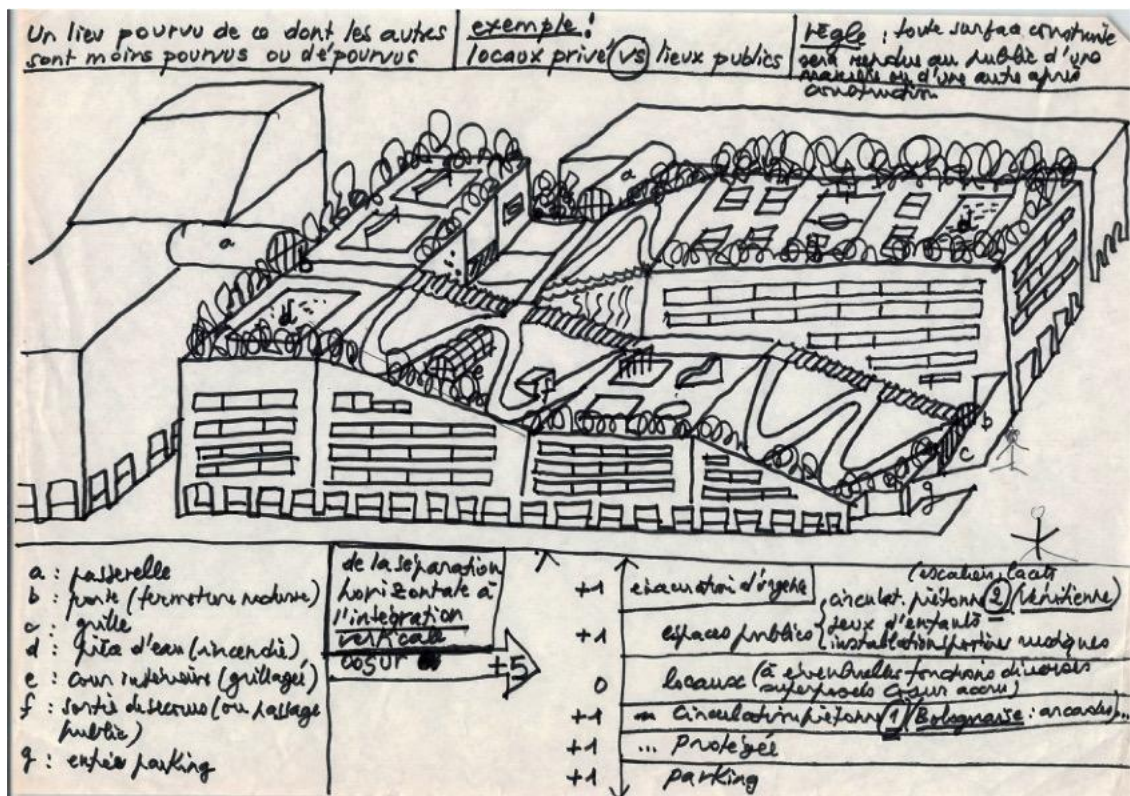 Un lieu pourvu de ce dont les autres
sont moins pourvus ou dépourvus
exemple :
locaux privé vs lieux publics
règle : toute surface construite
sera rendue au public d'une
manière ou d'une autre après
construction
a
a
b
d
e
f
f
d
b
c
g
a : passerelle
b : porte (fermeture nocturne)
c : grille
d : pièce d'eau (incendie)
e : cour intérieure (grillagée)
f : sortie de secours (ou passage
public)
g : entrée parking
de la séparation
horizontale à
l'intégration
verticale
cosur
+5
+1 évacuation d'urgence
(escaliers, lacets
circulat. piétonne 2 (Vénitienne)
+1 espaces publics jeux d'enfants
installation sportive modiques
0 locaux (à éventuelles fonctions diverses
superposés cosur accru)
+1 circulation piétonne 1 (Bolognaise : arcades)...
+1 ... protégée
+1 parking